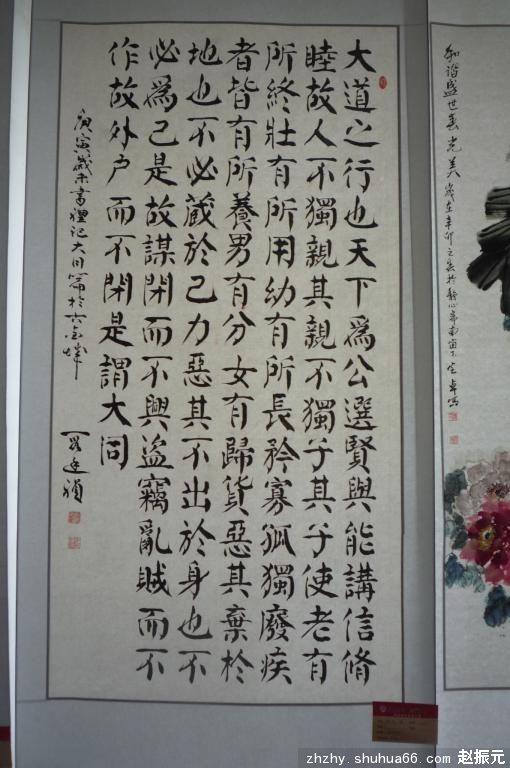 和諧盛世春光美 歲在辛卯之春於靜心齋南窗下
大道之行也天下爲公選賢與能講信脩
睦故人不獨親其親不獨子其子使老有
所終壯有所用幼有所長矜寡孤獨廢疾
者皆有所養男有分女有歸貨惡其棄於
地也不必藏於己力惡其不出於身也不
必爲己是故謀閉而不興盜竊亂賊而不
作故外户而不閉是謂大同
庚寅歲末書禮記大同篇於
zhzhy.shuhua66.com 赵振元